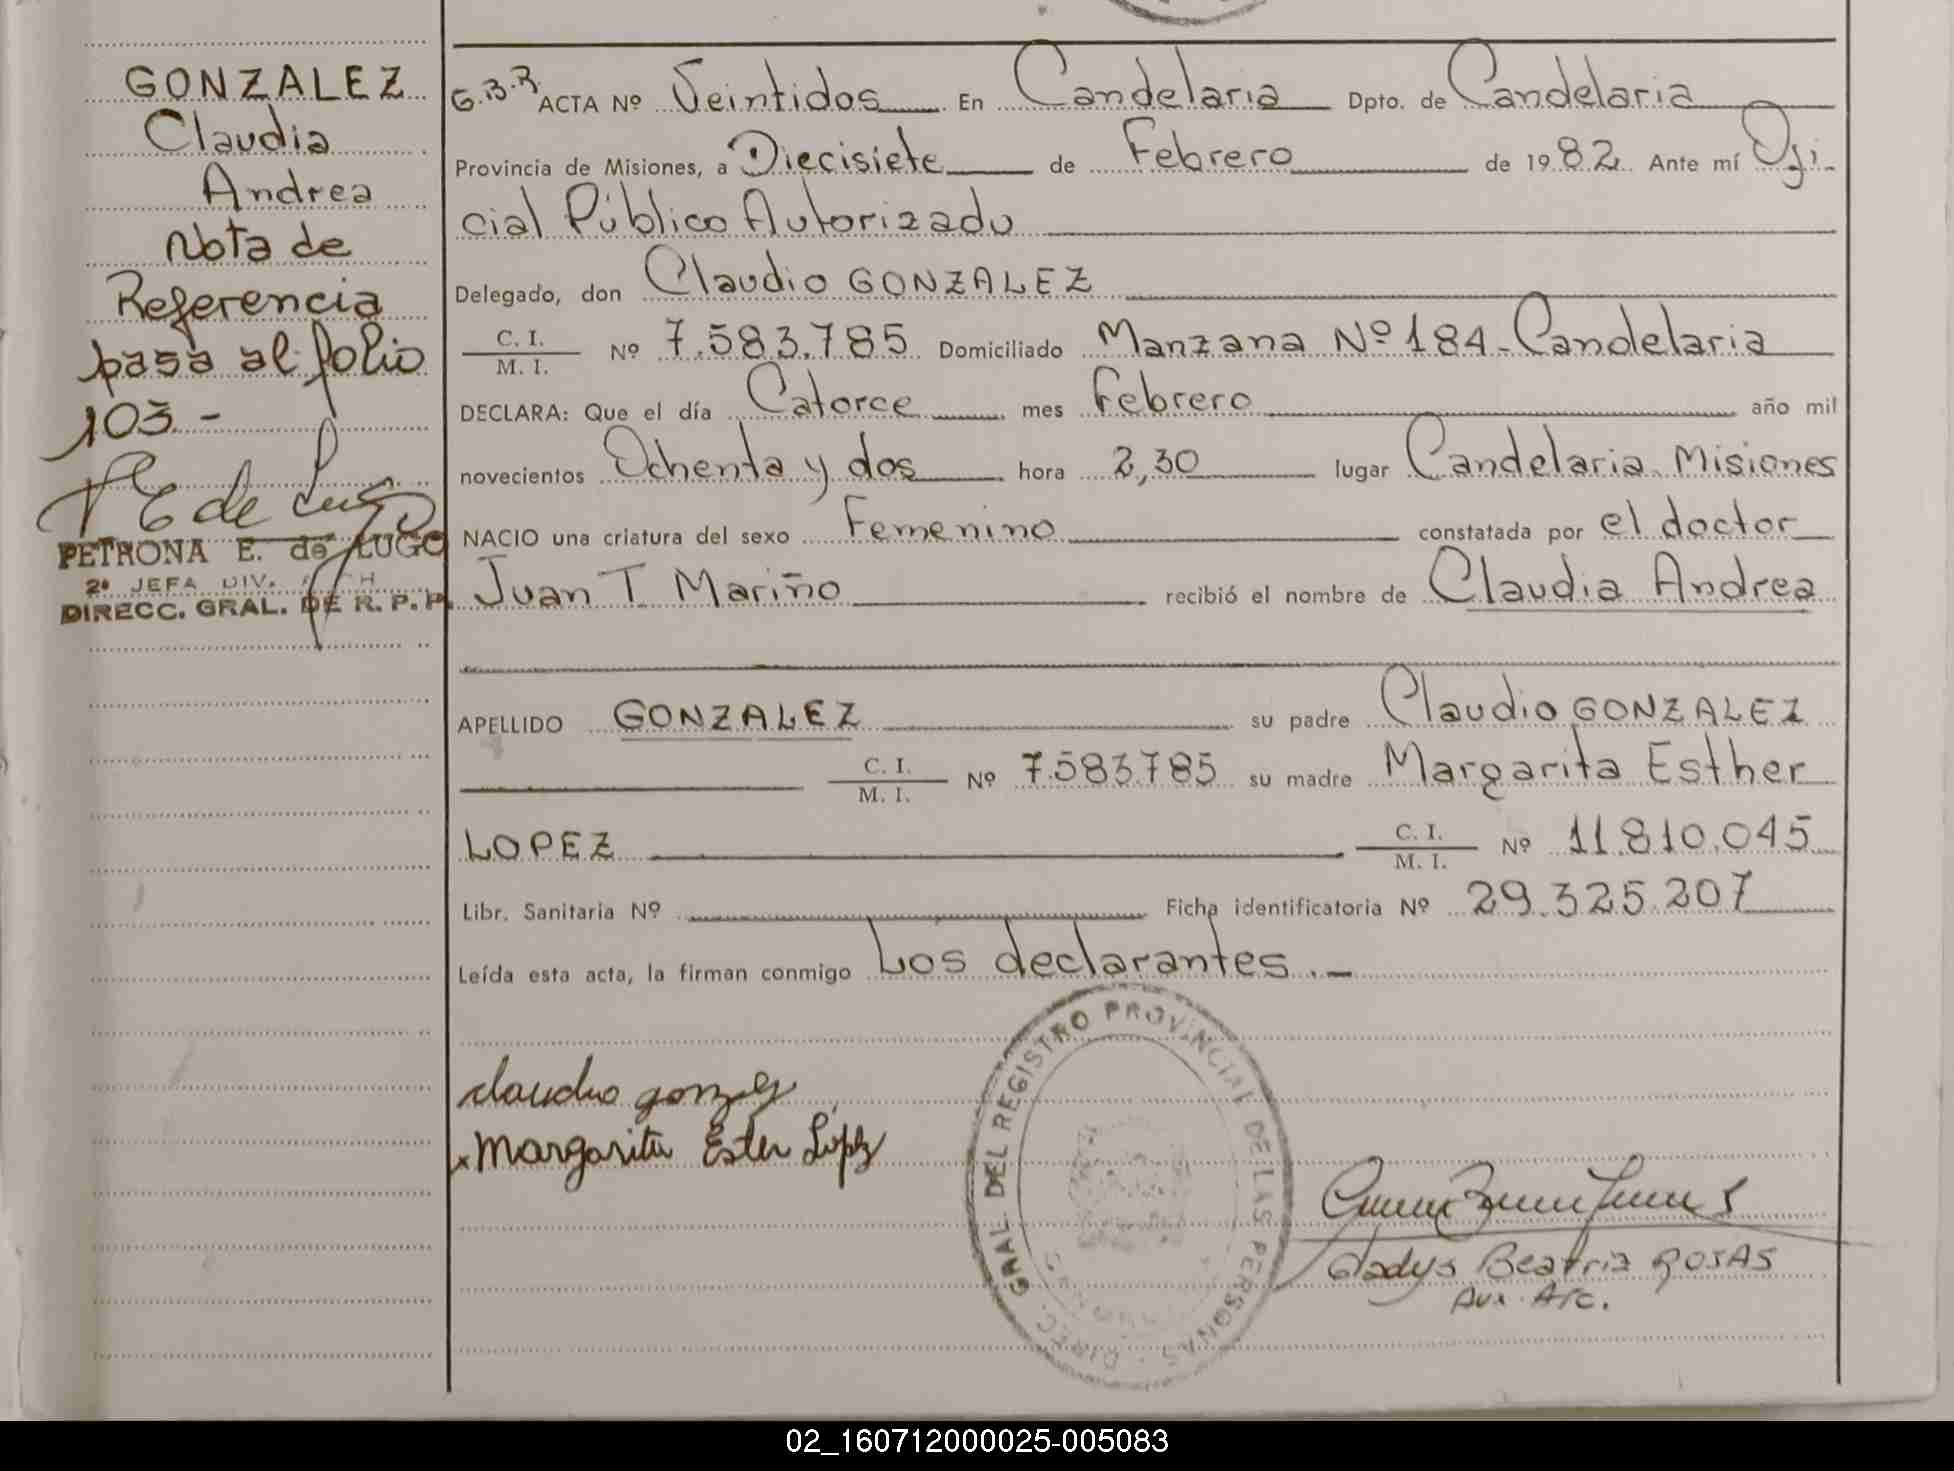 GONZALEZ
Claudia
Andrea
Nota de
Referencia
pasa al folio
103.-
PETRONA E. de LUGO
2ª JEFA DIV. H
DIRECC. GRAL. DE R. P. P.
G.B.R ACTA Nº Veintidos En Candelaria Dpto. de Candelaria
Provincia de Misiones, a Diecisiete de Febrero de 1982. Ante mí Ofi-
cial Público Autorizado
Delegado, don Claudio GONZALEZ
C. I.
M. I. Nº 7.583.785 Domiciliado Manzana Nº 184-Candelaria
DECLARA: Que el día Catorce mes Febrero año mil
novecientos Ochenta y dos hora 2,30 lugar Candelaria Misiones
NACIO una criatura del sexo Femenino constatada por el doctor
Juan T. Mariño recibió el nombre de Claudia Andrea
APELLIDO GONZALEZ su padre Claudio GONZALEZ
C. I.
M. I. Nº 7.583.785 su madre Margarita Esther
LOPEZ C. I.
M. I. Nº 11.810.045
Libr. Sanitaria Nº Ficha identificatoria Nº 29.325.207
Leída esta acta, la firman conmigo Los declarantes.-
claudio gonzalez
x Margarita Ester López
DIREC. GRAL. DEL REGISTRO PROVINCIAL DE LAS PERSONAS
Gladys Beatriz ROSAS
Aux. Arc.
02_160712000025-005083